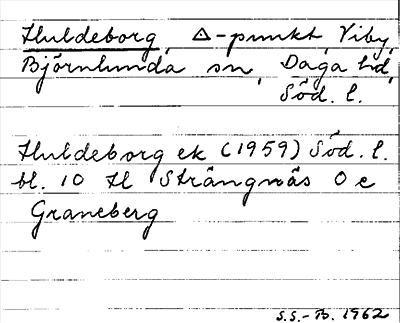 Huldeborg, △-punkt, Viby,
Björnlunda sn, Daga hd,
Söd. l.
Huldeborg ek (1959) Söd. l.
bl. 10 H Strängnäs O e
Graneberg
S.S.-B. 1962